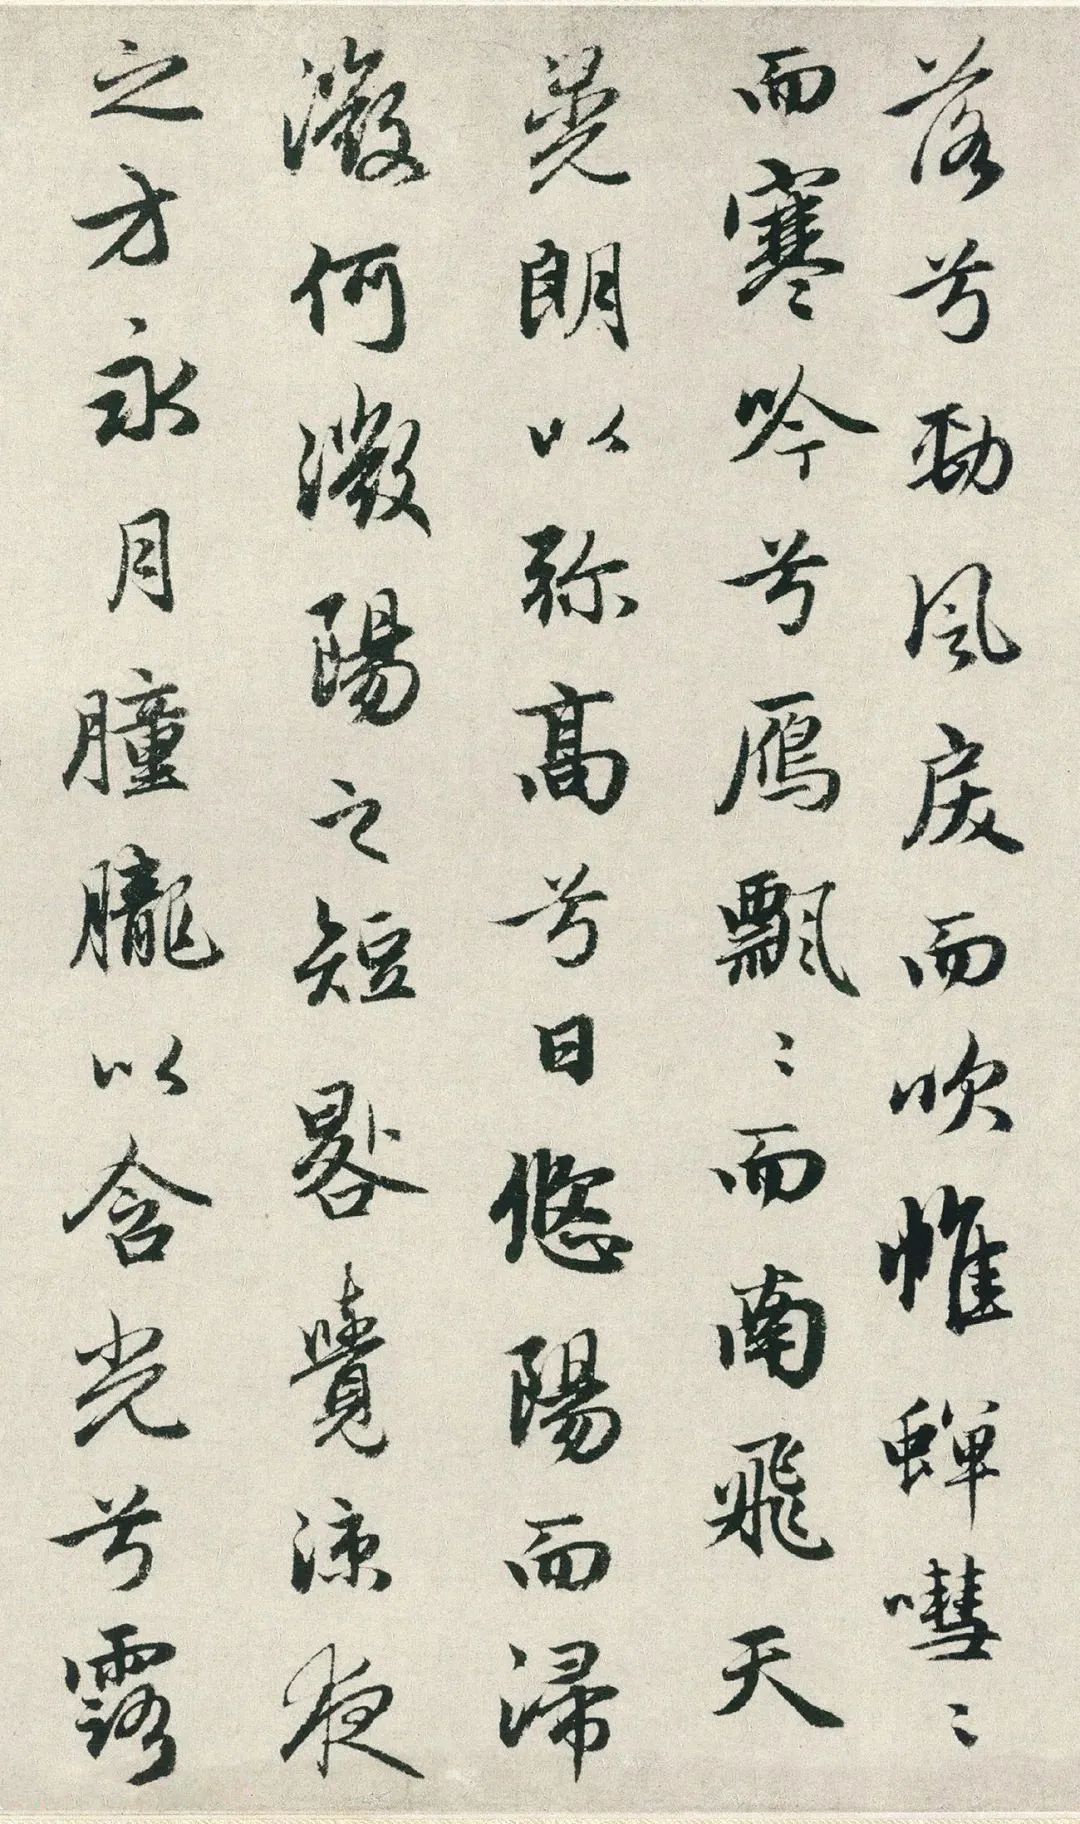 落兮勁風戾而吹帷蟬嘒〻
而寒吟兮鴈飄〻而南飛天
晃朗以弥高兮日悠陽而浸
微何微陽之短晷覺涼夜
之方永月朣朧以含光兮露